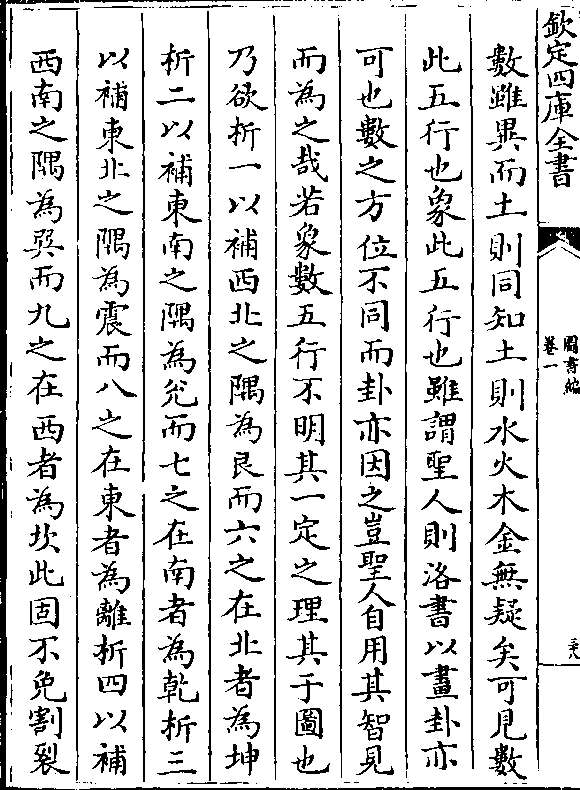 欽定四庫全書
圖書編
卷一
數雖異而土則同知土則水火木金無疑矣可見數
此五行也象此五行也雖謂聖人則洛書以畫卦亦
可也數之方位不同而卦亦因之豈聖人自用其智見
而為之哉若象數五行不明其一定之理其于圖也
乃欲析一以補西北之隅為艮而六之在北者為坤
析二以補東南之隅為兊而七之在南者為乾析三
以補東北之隅為震而八之在東者為離析四以補
西南之隅為巽而九之在西者為坎此固不免割裂